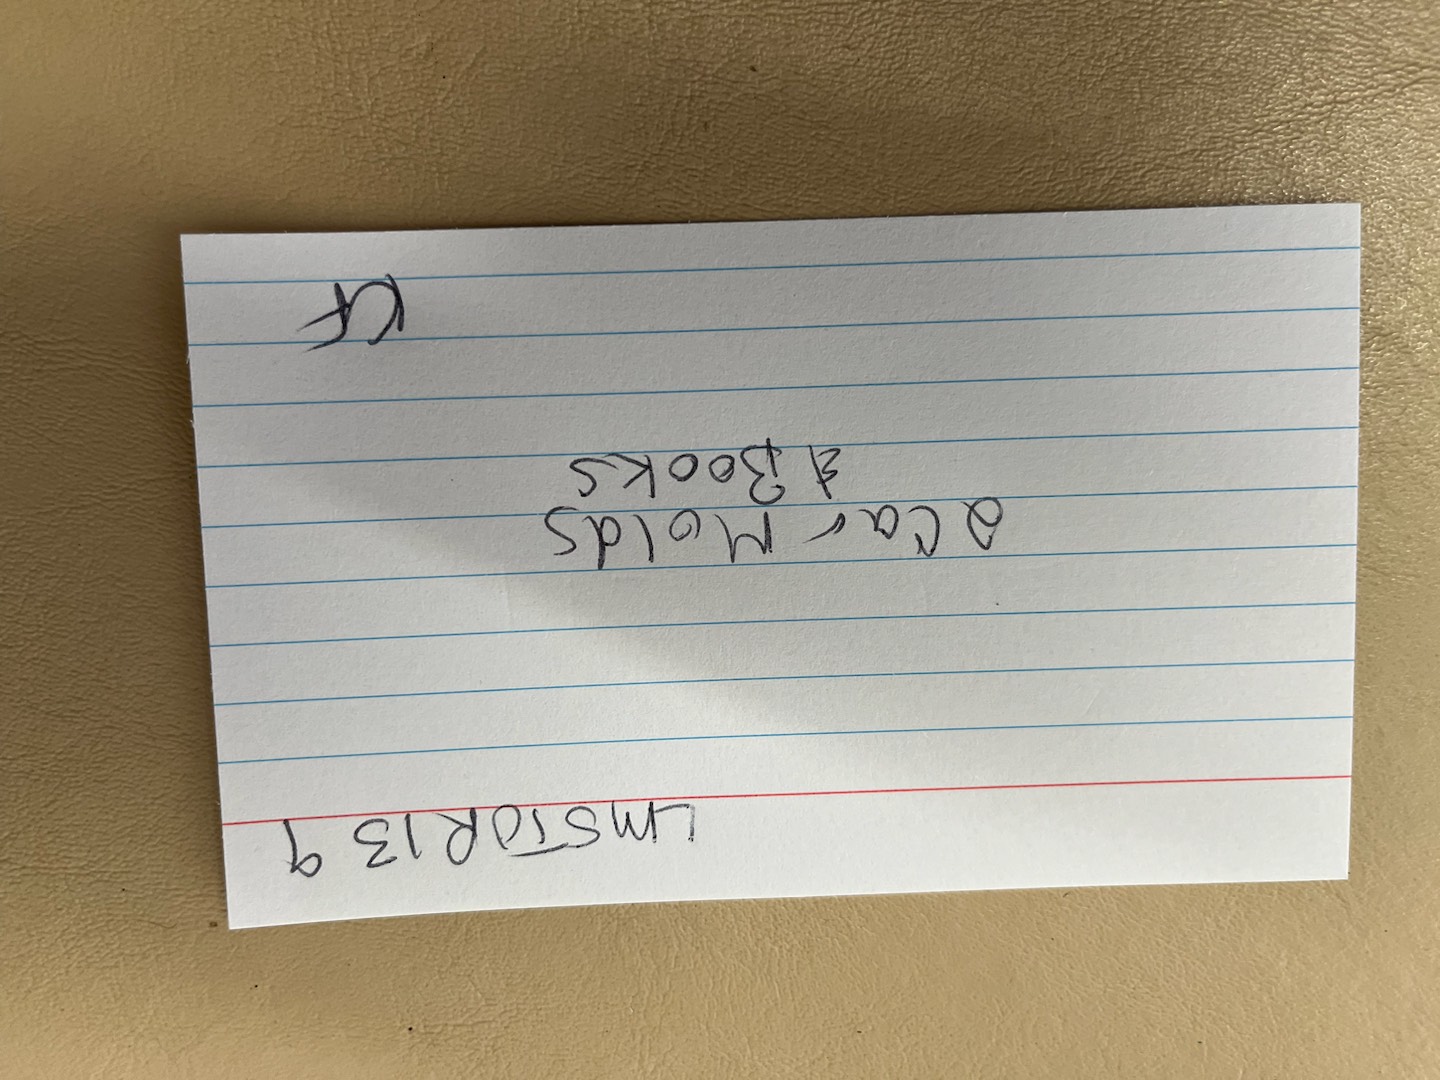 LMSTOR139
2 Car Molds
& Books
KF